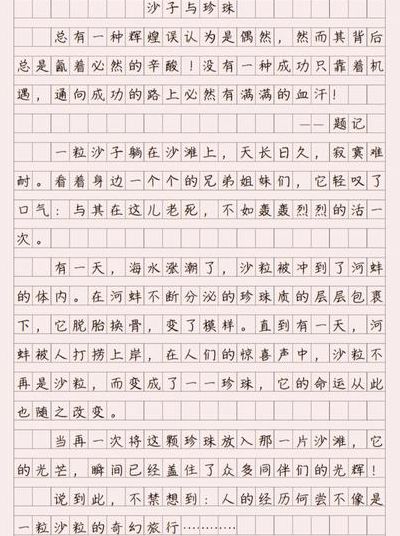 沙子与珍珠
总有一种辉煌误认为是偶然，然而其背后
总是氤着必然的辛酸！没有一种成功只靠着机
遇，通向成功的路上必然有满满的血汗！
—— 题记
一粒沙子躺在沙滩上，天长日久，寂寞难
耐。看着身边一个个的兄弟姐妹们，它轻叹了
口气：与其在这儿老死，不如轰轰烈烈的活一
次。
有一天，海水涨潮了，沙粒被冲到了河蚌
的体内。在河蚌不断分泌的珍珠质的层层包裹
下，它脱胎换骨，变了模样。直到有一天，河
蚌被人打捞上岸，在人们的惊喜声中，沙粒不
再是沙粒，而变成了一一珍珠，它的命运从此
也随之改变。
当再一次将这颗珍珠放入那一片沙滩，它
的光芒，瞬间已经盖住了众多同伴们的光辉！
说到此，不禁想到：人的经历何尝不像是
一粒沙粒的奇幻旅行…………